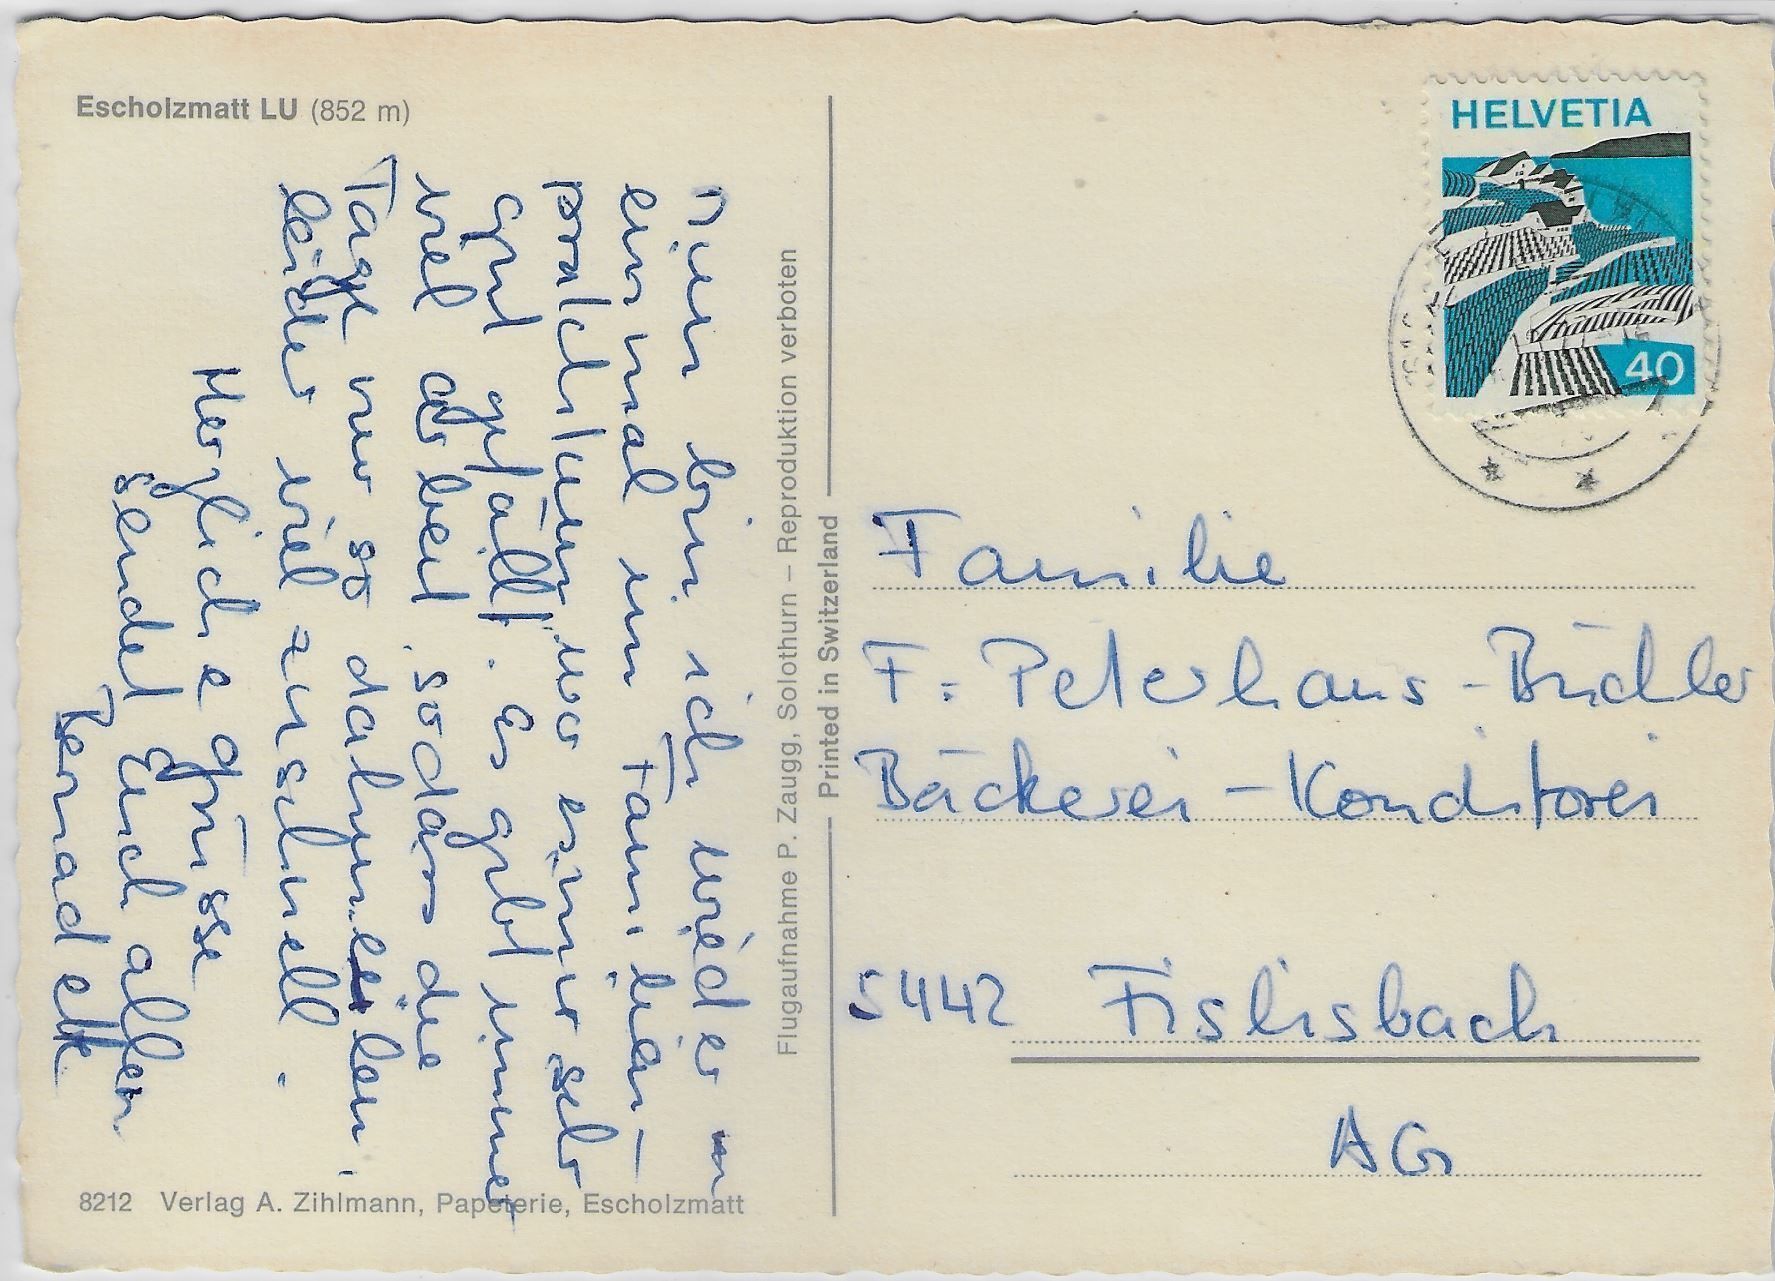 Escholzmatt LU (852 m)
Nun bin ich wieder
einmal im Familien-
praktikum wo es mir sehr
gut gefällt. Es gibt immer
viel arbeit, sodass die
Tage nur so dahineilen,
leider viel zu schnell.
Herzliche grüsse
sendet Euch allen
Bernadett
8212 Verlag A. Zihlmann, Papeterie, Escholzmatt
Flugaufnahme P. Zaugg, Solothurn – Reproduktion verboten
Printed in Switzerland
HELVETIA
40
Familie
F. Peterhans-Büchler
Bäckerei-Konditorei
5442 Fislisbach
AG